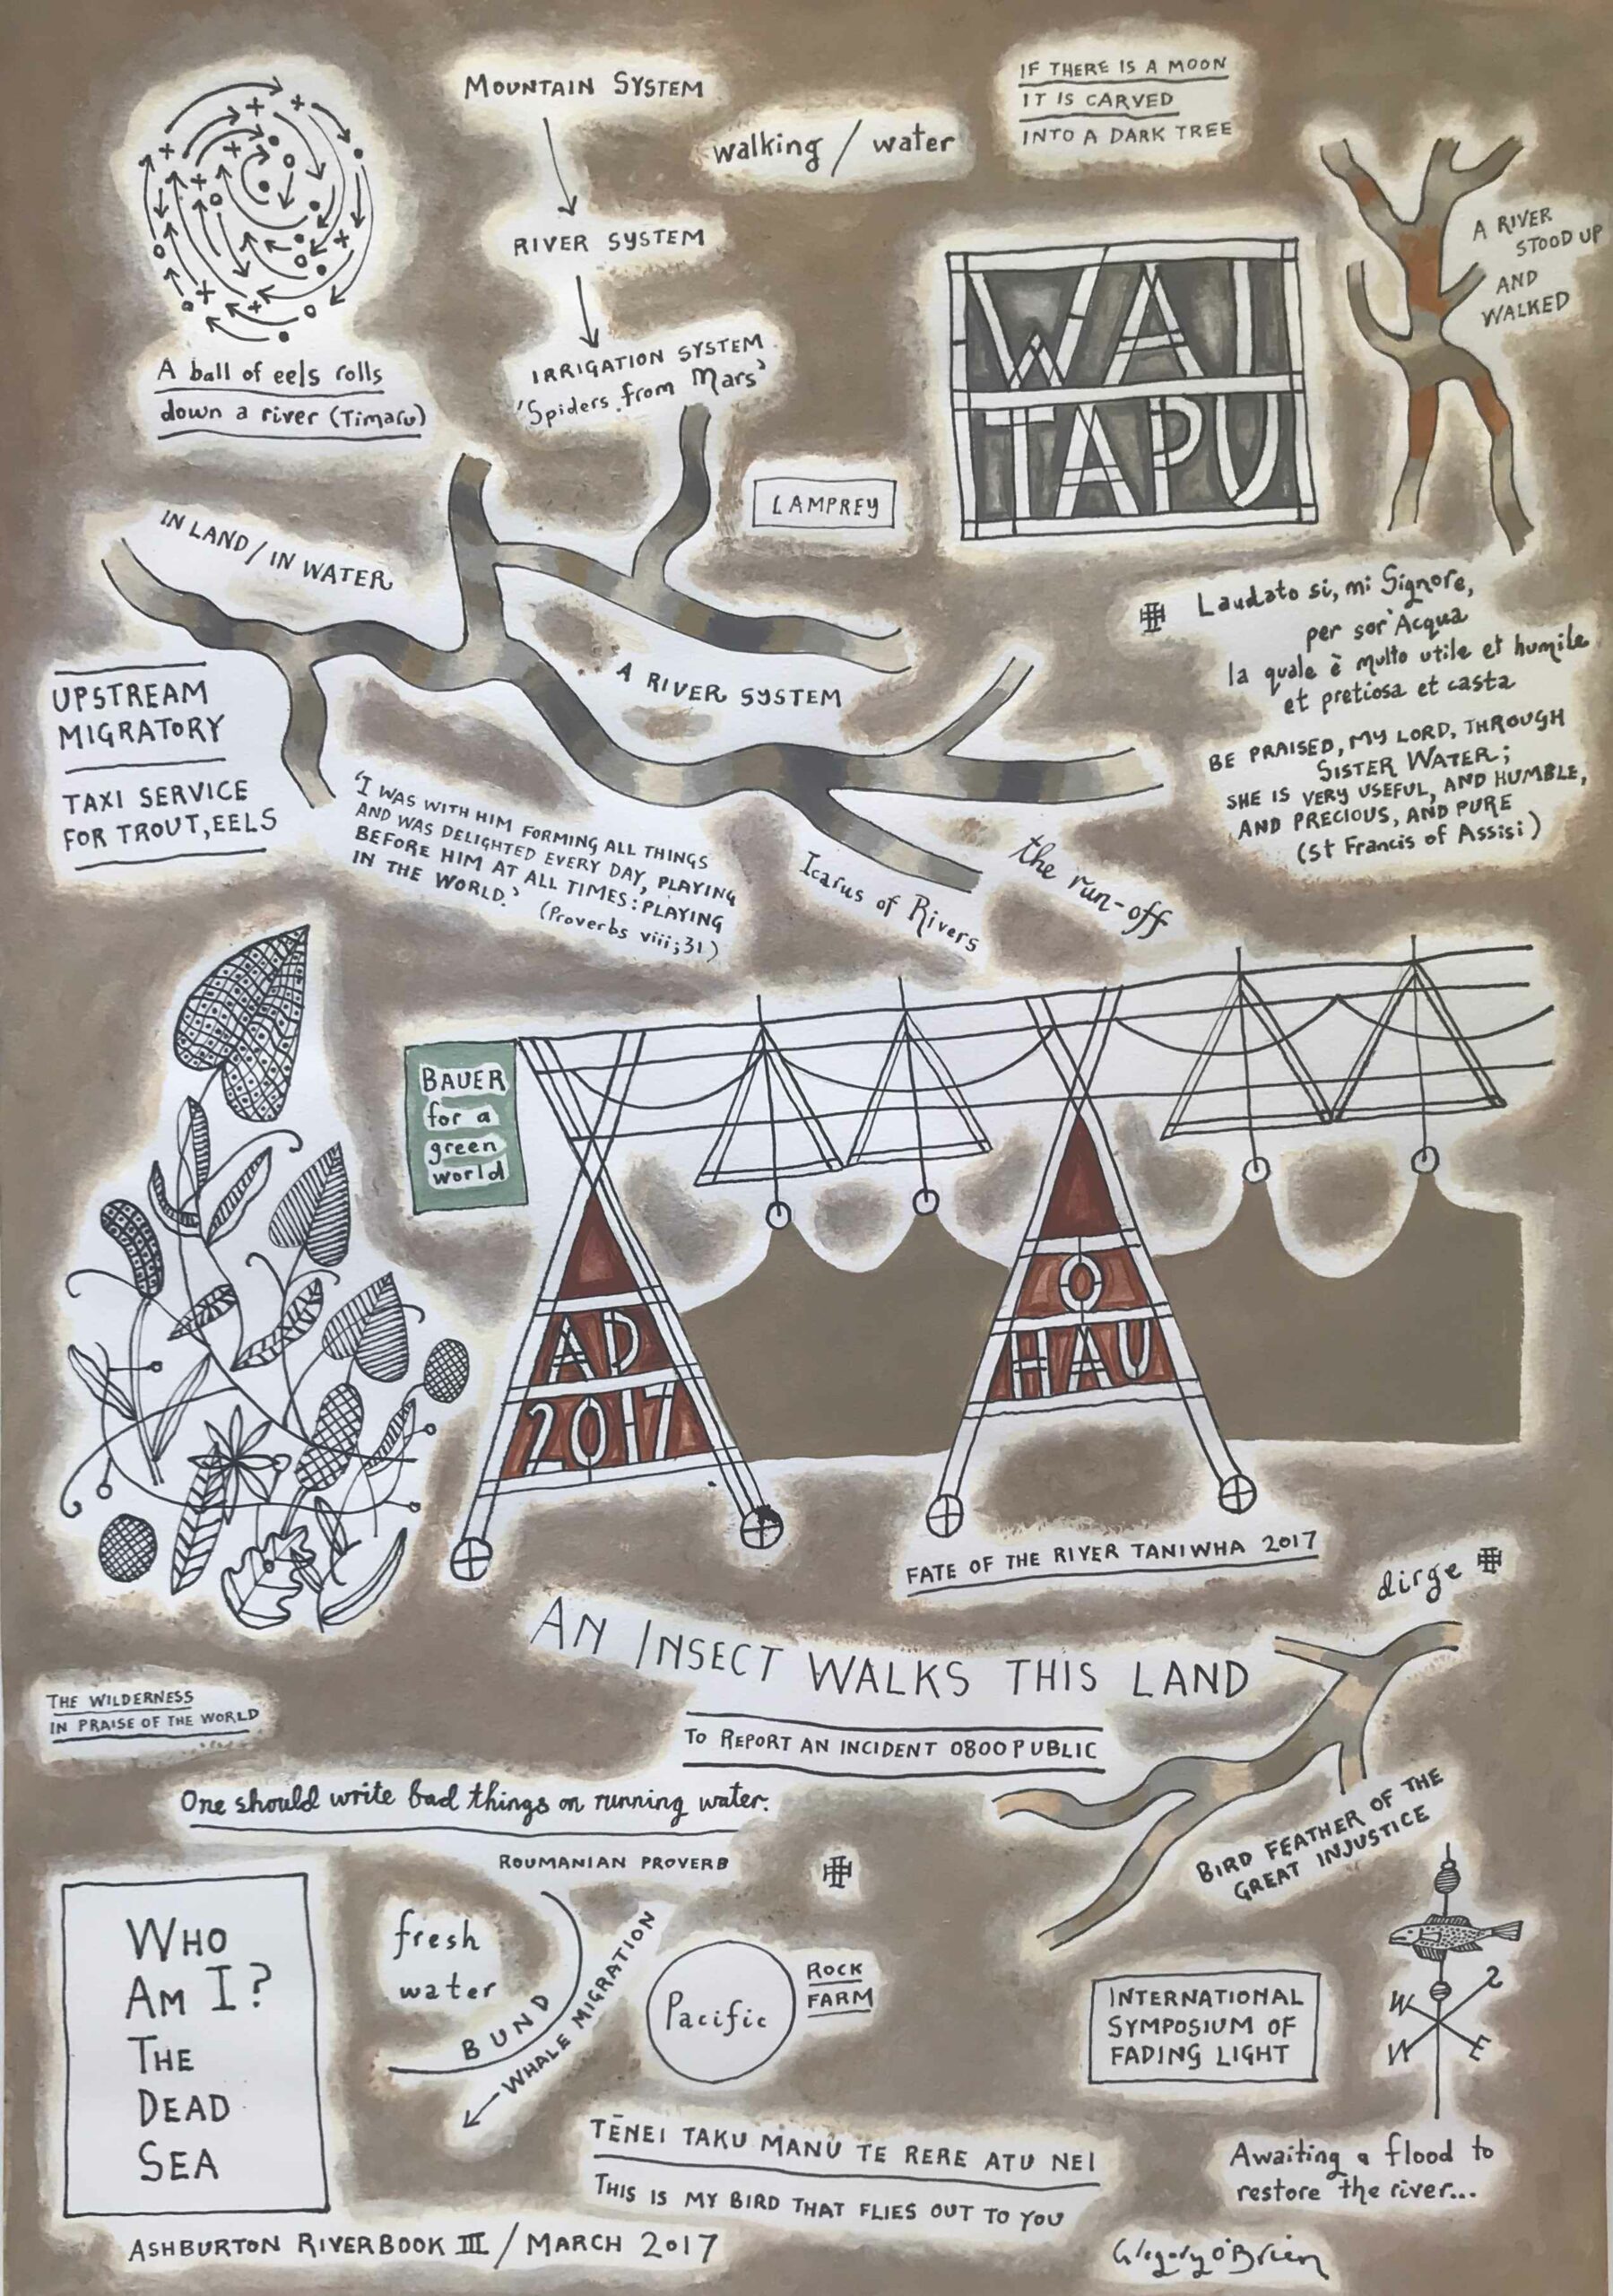 MOUNTAIN SYSTEM
RIVER SYSTEM
IRRIGATION SYSTEM
'Spiders from Mars'
walking / water
IF THERE IS A MOON
IT IS CARVED
INTO A DARK TREE
A RIVER
STOOD UP
AND
WALKED
WAI
TAPU
A ball of eels rolls
down a river (Timaru)
LAMPREY
IN LAND / IN WATER
A RIVER SYSTEM
UPSTREAM
MIGRATORY
TAXI SERVICE
FOR TROUT, EELS
'I WAS WITH HIM FORMING ALL THINGS
AND WAS DELIGHTED EVERY DAY, PLAYING
BEFORE HIM AT ALL TIMES: PLAYING
IN THE WORLD.'
(Proverbs viii;31)
Icarus of Rivers
the run-off
Laudato si, mi Signore,
per sor'Acqua
la quale è multo utile et humile
et pretiosa et casta
BE PRAISED, MY LORD, THROUGH
SISTER WATER;
SHE IS VERY USEFUL, AND HUMBLE,
AND PRECIOUS, AND PURE
(St Francis of Assisi)
BAUER
for a
green
world
AD
2017
O
HAU
FATE OF THE RIVER TANIWHA 2017
dirge
AN INSECT WALKS THIS LAND
TO REPORT AN INCIDENT 0800 PUBLIC
THE WILDERNESS
IN PRAISE OF THE WORLD
One should write bad things on running water.
ROUMANIAN PROVERB
BIRD FEATHER OF THE
GREAT INJUSTICE
WHO
AM I?
THE
DEAD
SEA
fresh
water
BUND
WHALE MIGRATION
Pacific
ROCK
FARM
INTERNATIONAL
SYMPOSIUM OF
FADING LIGHT
W
S
N
E
TĒNEI TAKU MANU TE RERE ATU NEI
THIS IS MY BIRD THAT FLIES OUT TO YOU
Awaiting a flood to
restore the river...
ASHBURTON RIVERBOOK III / MARCH 2017
Gregory O'Brien